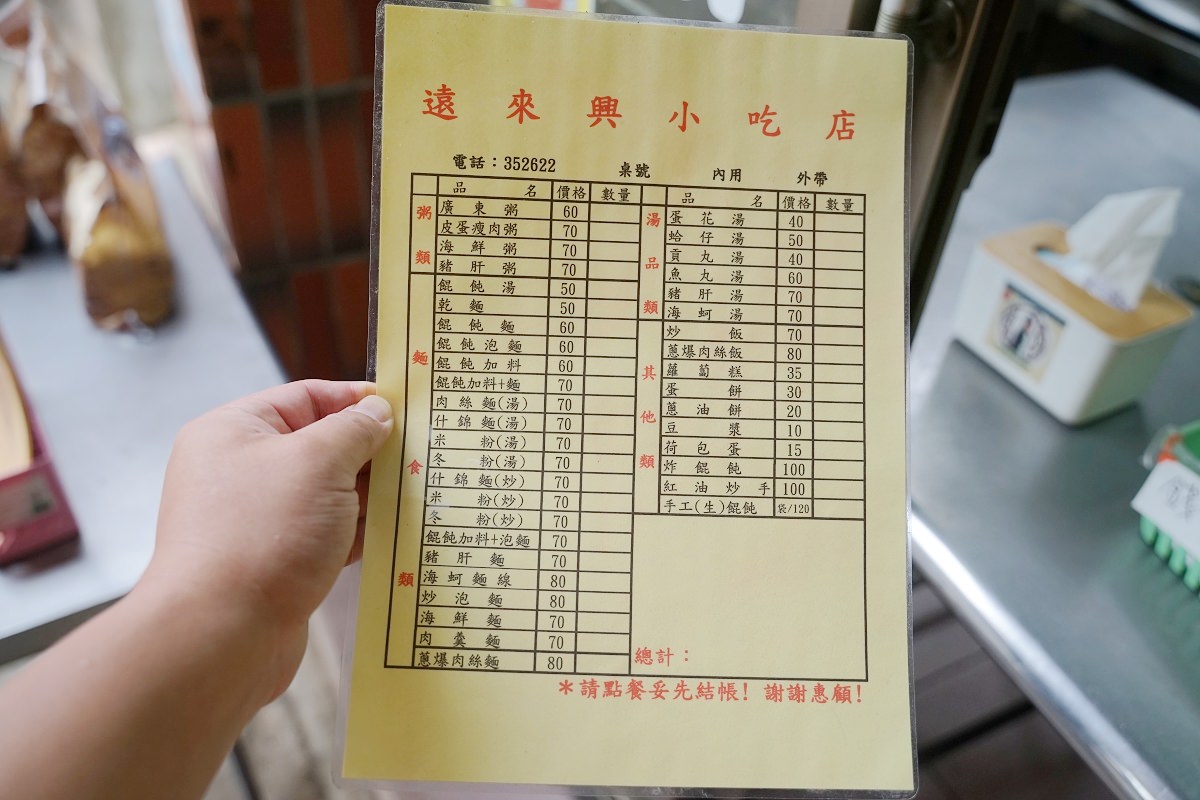 遠來興小吃店
電話：352622 桌號 內用 外帶
品名 價格 數量
粥類
廣東粥 60
皮蛋瘦肉粥 70
海鮮粥 70
豬肝粥 70
麵食類
餛飩湯 50
乾麵 50
餛飩麵 60
餛飩泡麵 60
餛飩加料 60
餛飩加料+麵 70
肉絲麵(湯) 70
什錦麵(湯) 70
米粉(湯) 70
冬粉(湯) 70
什錦麵(炒) 70
米粉(炒) 70
冬粉(炒) 70
餛飩加料+泡麵 70
豬肝麵 70
海蚵麵線 80
炒泡麵 80
海鮮麵 70
肉羹麵 70
蔥爆肉絲麵 80
品名 價格 數量
湯品類
蛋花湯 40
蛤仔湯 50
貢丸湯 40
魚丸湯 60
豬肝湯 70
海蚵湯 70
其他類
炒飯 70
蔥爆肉絲飯 80
蘿蔔糕 35
蛋餅 30
蔥油餅 20
豆漿 10
荷包蛋 15
炸餛飩 100
紅油炒手 100
手工(生)餛飩 袋/120
總計：
＊請點餐妥先結帳！謝謝惠顧！